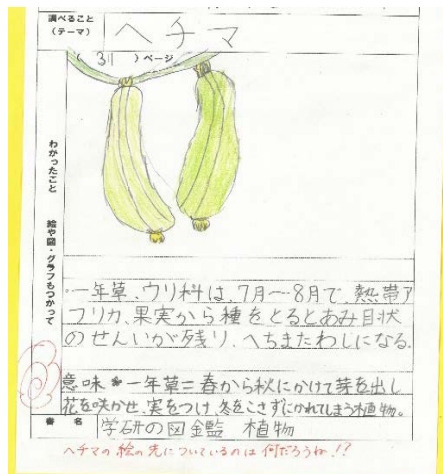 調べること
(テーマ)
ヘチマ
(31)ページ
わかったこと 絵や図・グラフもつかって
・一年草、ウリ科は、7月〜8月で、熱帯ア
フリカ、果実から種をとるとあみ目状
のせんいが残り、へちまたわしになる。
意味 一年草=春から秋にかけて芽を出し
花を咲かせ、実をつけ、冬をこさずにかれてしまう植物。
書名
学研の図鑑 植物
ヘチマの絵の先についているのは何だろうね!?